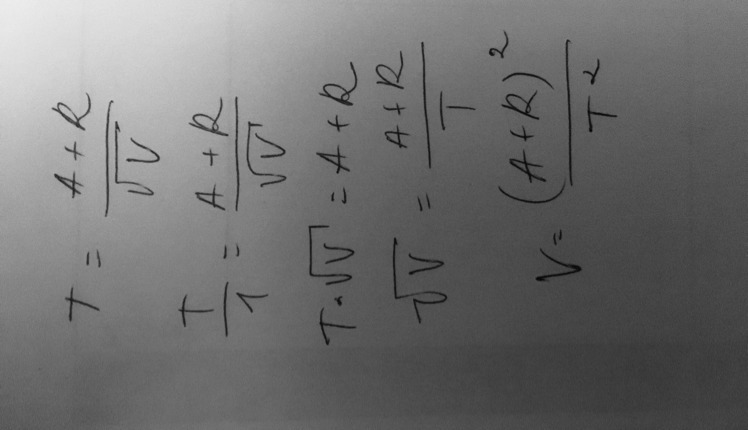 T = A + R / √V
T / 1 = A + R / √V
T · √V = A + R
√V = A + R / T
V = (A + R)² / T²